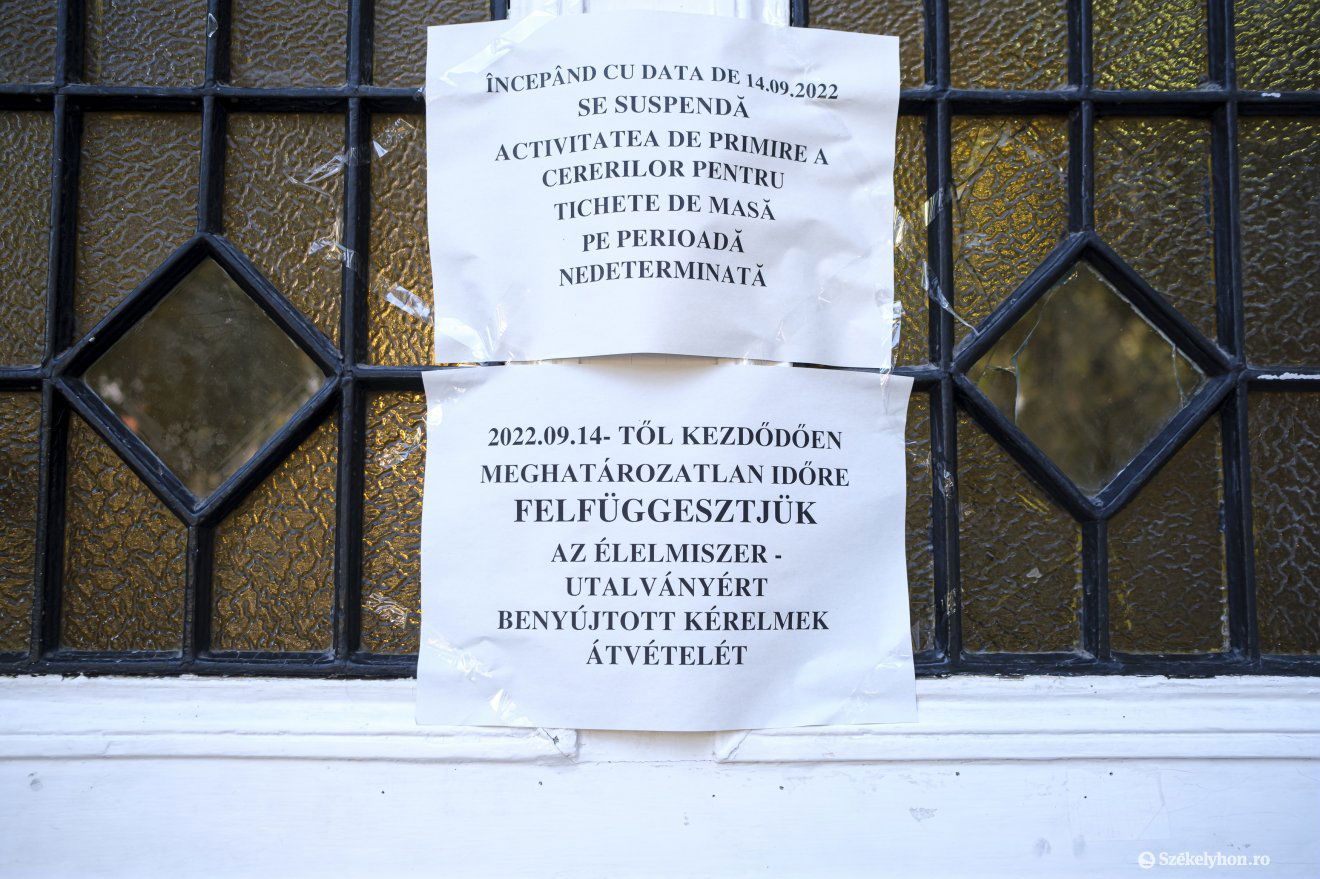 ÎNCEPÂND CU DATA DE 14.09.2022
SE SUSPENDĂ
ACTIVITATEA DE PRIMIRE A
CERERILOR PENTRU
TICHETE DE MASĂ
PE PERIOADĂ
NEDETERMINATĂ
2022.09.14- TŐL KEZDŐDŐEN
MEGHATÁROZATLAN IDŐRE
FELFÜGGESZTJÜK
AZ ÉLELMISZER -
UTALVÁNYÉRT
BENYÚJTOTT KÉRELMEK
ÁTVÉTELÉT
Székelyhon.ro